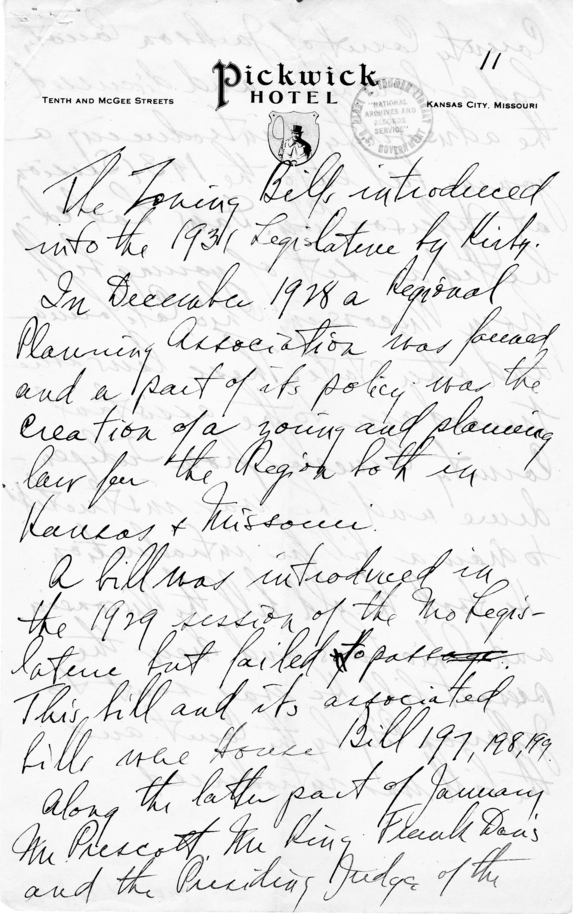 11
Pickwick
HOTEL
TENTH AND McGEE STREETS
KANSAS CITY, MISSOURI
HARRY S. TRUMAN LIBRARY
"NATIONAL
ARCHIVES AND
RECORDS
SERVICE"
U.S. GOVERNMENT
The Zoning Bills introduced
into the 1931 Legislature by Kirby.
In December 1928 a Regional
Planning Association was formed
and a part of its policy was the
creation of a zoning and planning
law for the Region both in
Kansas & Missouri.
A bill was introduced in
the 1929 session of the Mo Legis-
lature but failed to passage.
This bill and its associated
bills were House Bill 197, 198, 199.
Along the latter part of January
Mr Prescott, Mr King, Frank Davis
and the Presiding Judge of the